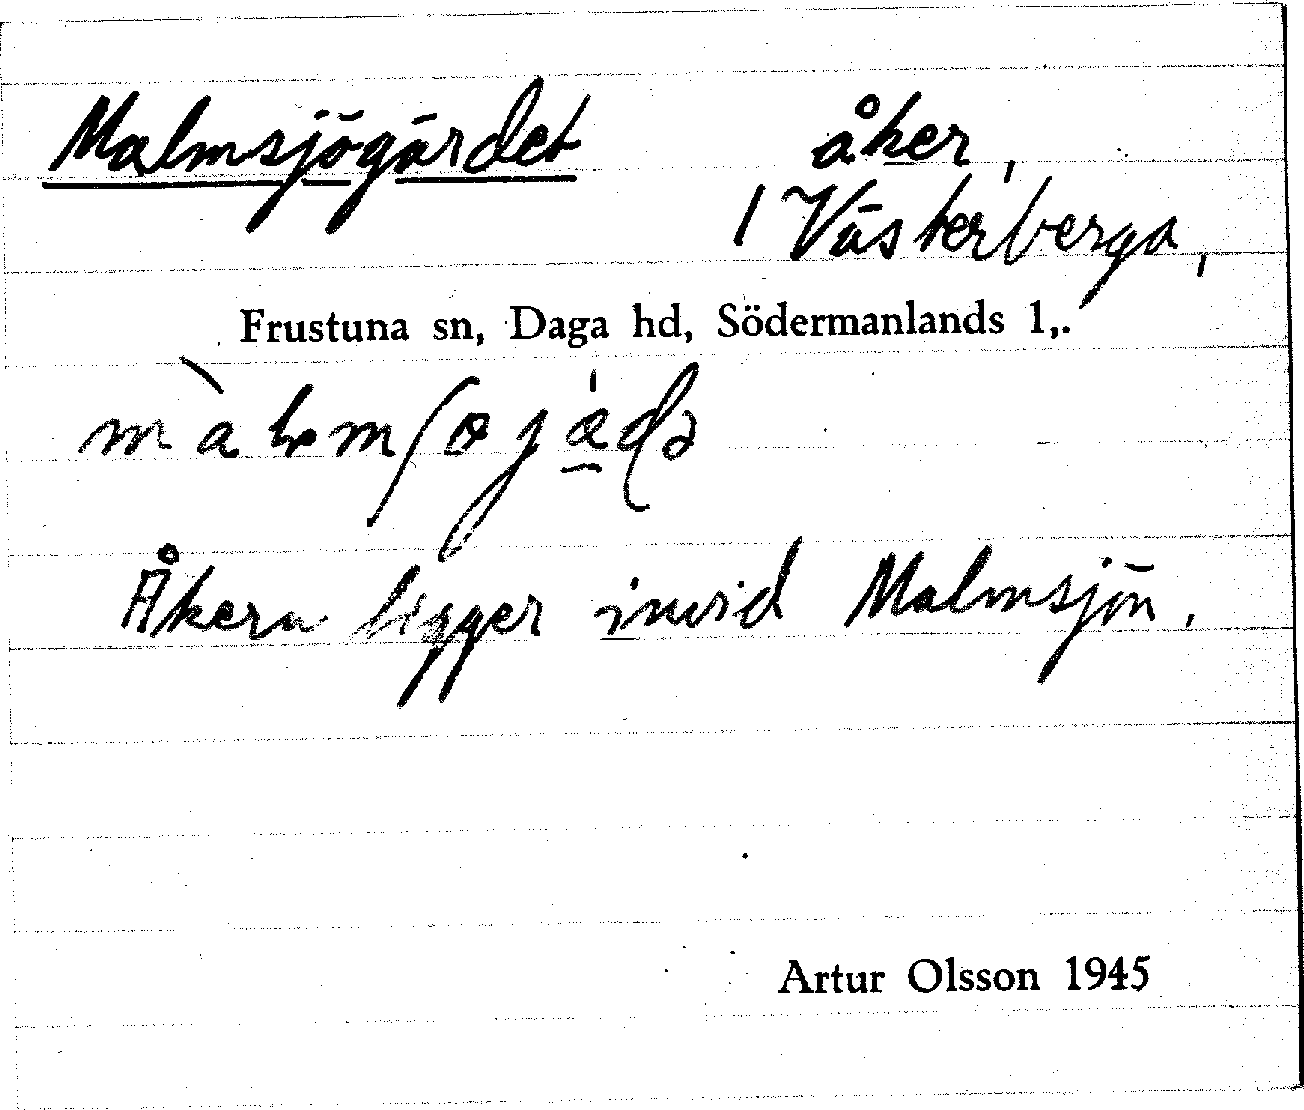 Malmsjögärdet åker,
/ Västerberga,
Frustuna sn, Daga hd, Södermanlands l,.
Åkern ligger invid Malmsjön.
Artur Olsson 1945